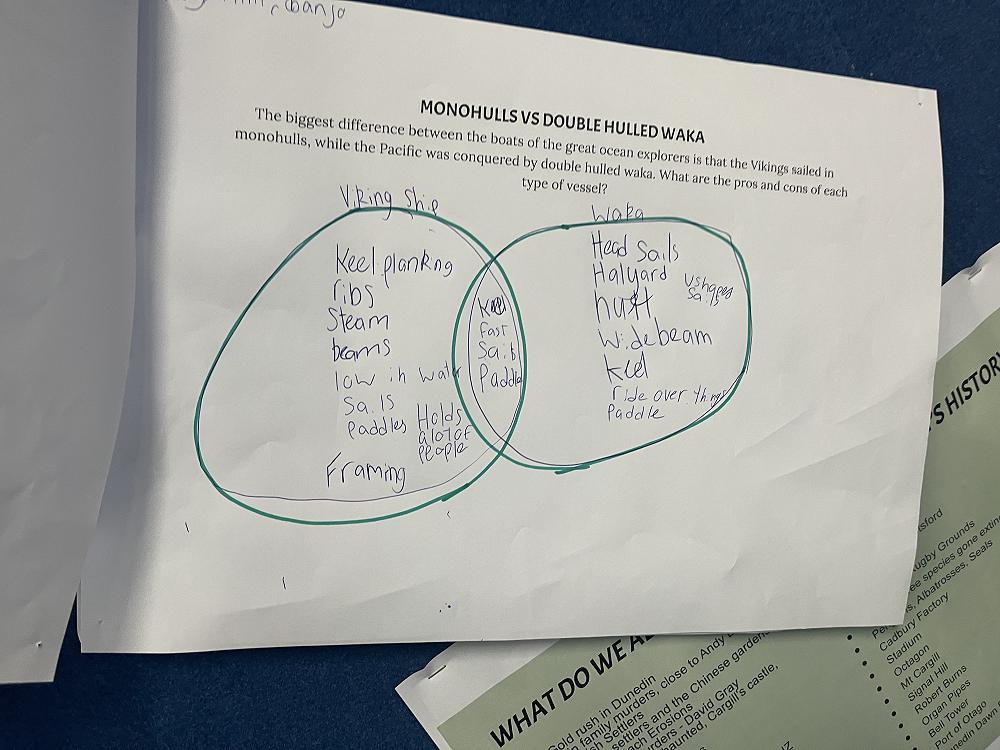 banjo
MONOHULLS VS DOUBLE HULLED WAKA
The biggest difference between the boats of the great ocean explorers is that the Vikings sailed in
monohulls, while the Pacific was conquered by double hulled waka. What are the pros and cons of each
type of vessel?
Viking Ship
Keel plankng
ribs
Steam
beams
low in water
Sails
Paddles
Holds
a lot of
people
Framing
fast
Sail
Paddle
Waka
Head Sails
Halyard
U shapes
Sails
Wide beam
keel
ride over things
Paddle
'S HISTORY
Rugby Grounds
species gone extinct
Albatrosses, Seals
Cadbury Factory
Stadium
Octagon
Mt Cargill
Signal Hill
Robert Burns
Organ Pipes
Bell Tower
Port of Otago
Dawn
WHAT DO WE
Gold rush in Dunedin
family murders, close to Andy
Settlers
settlers and the Chinese gardens
Erosions
David Gray
haunted, Cargill's castle,